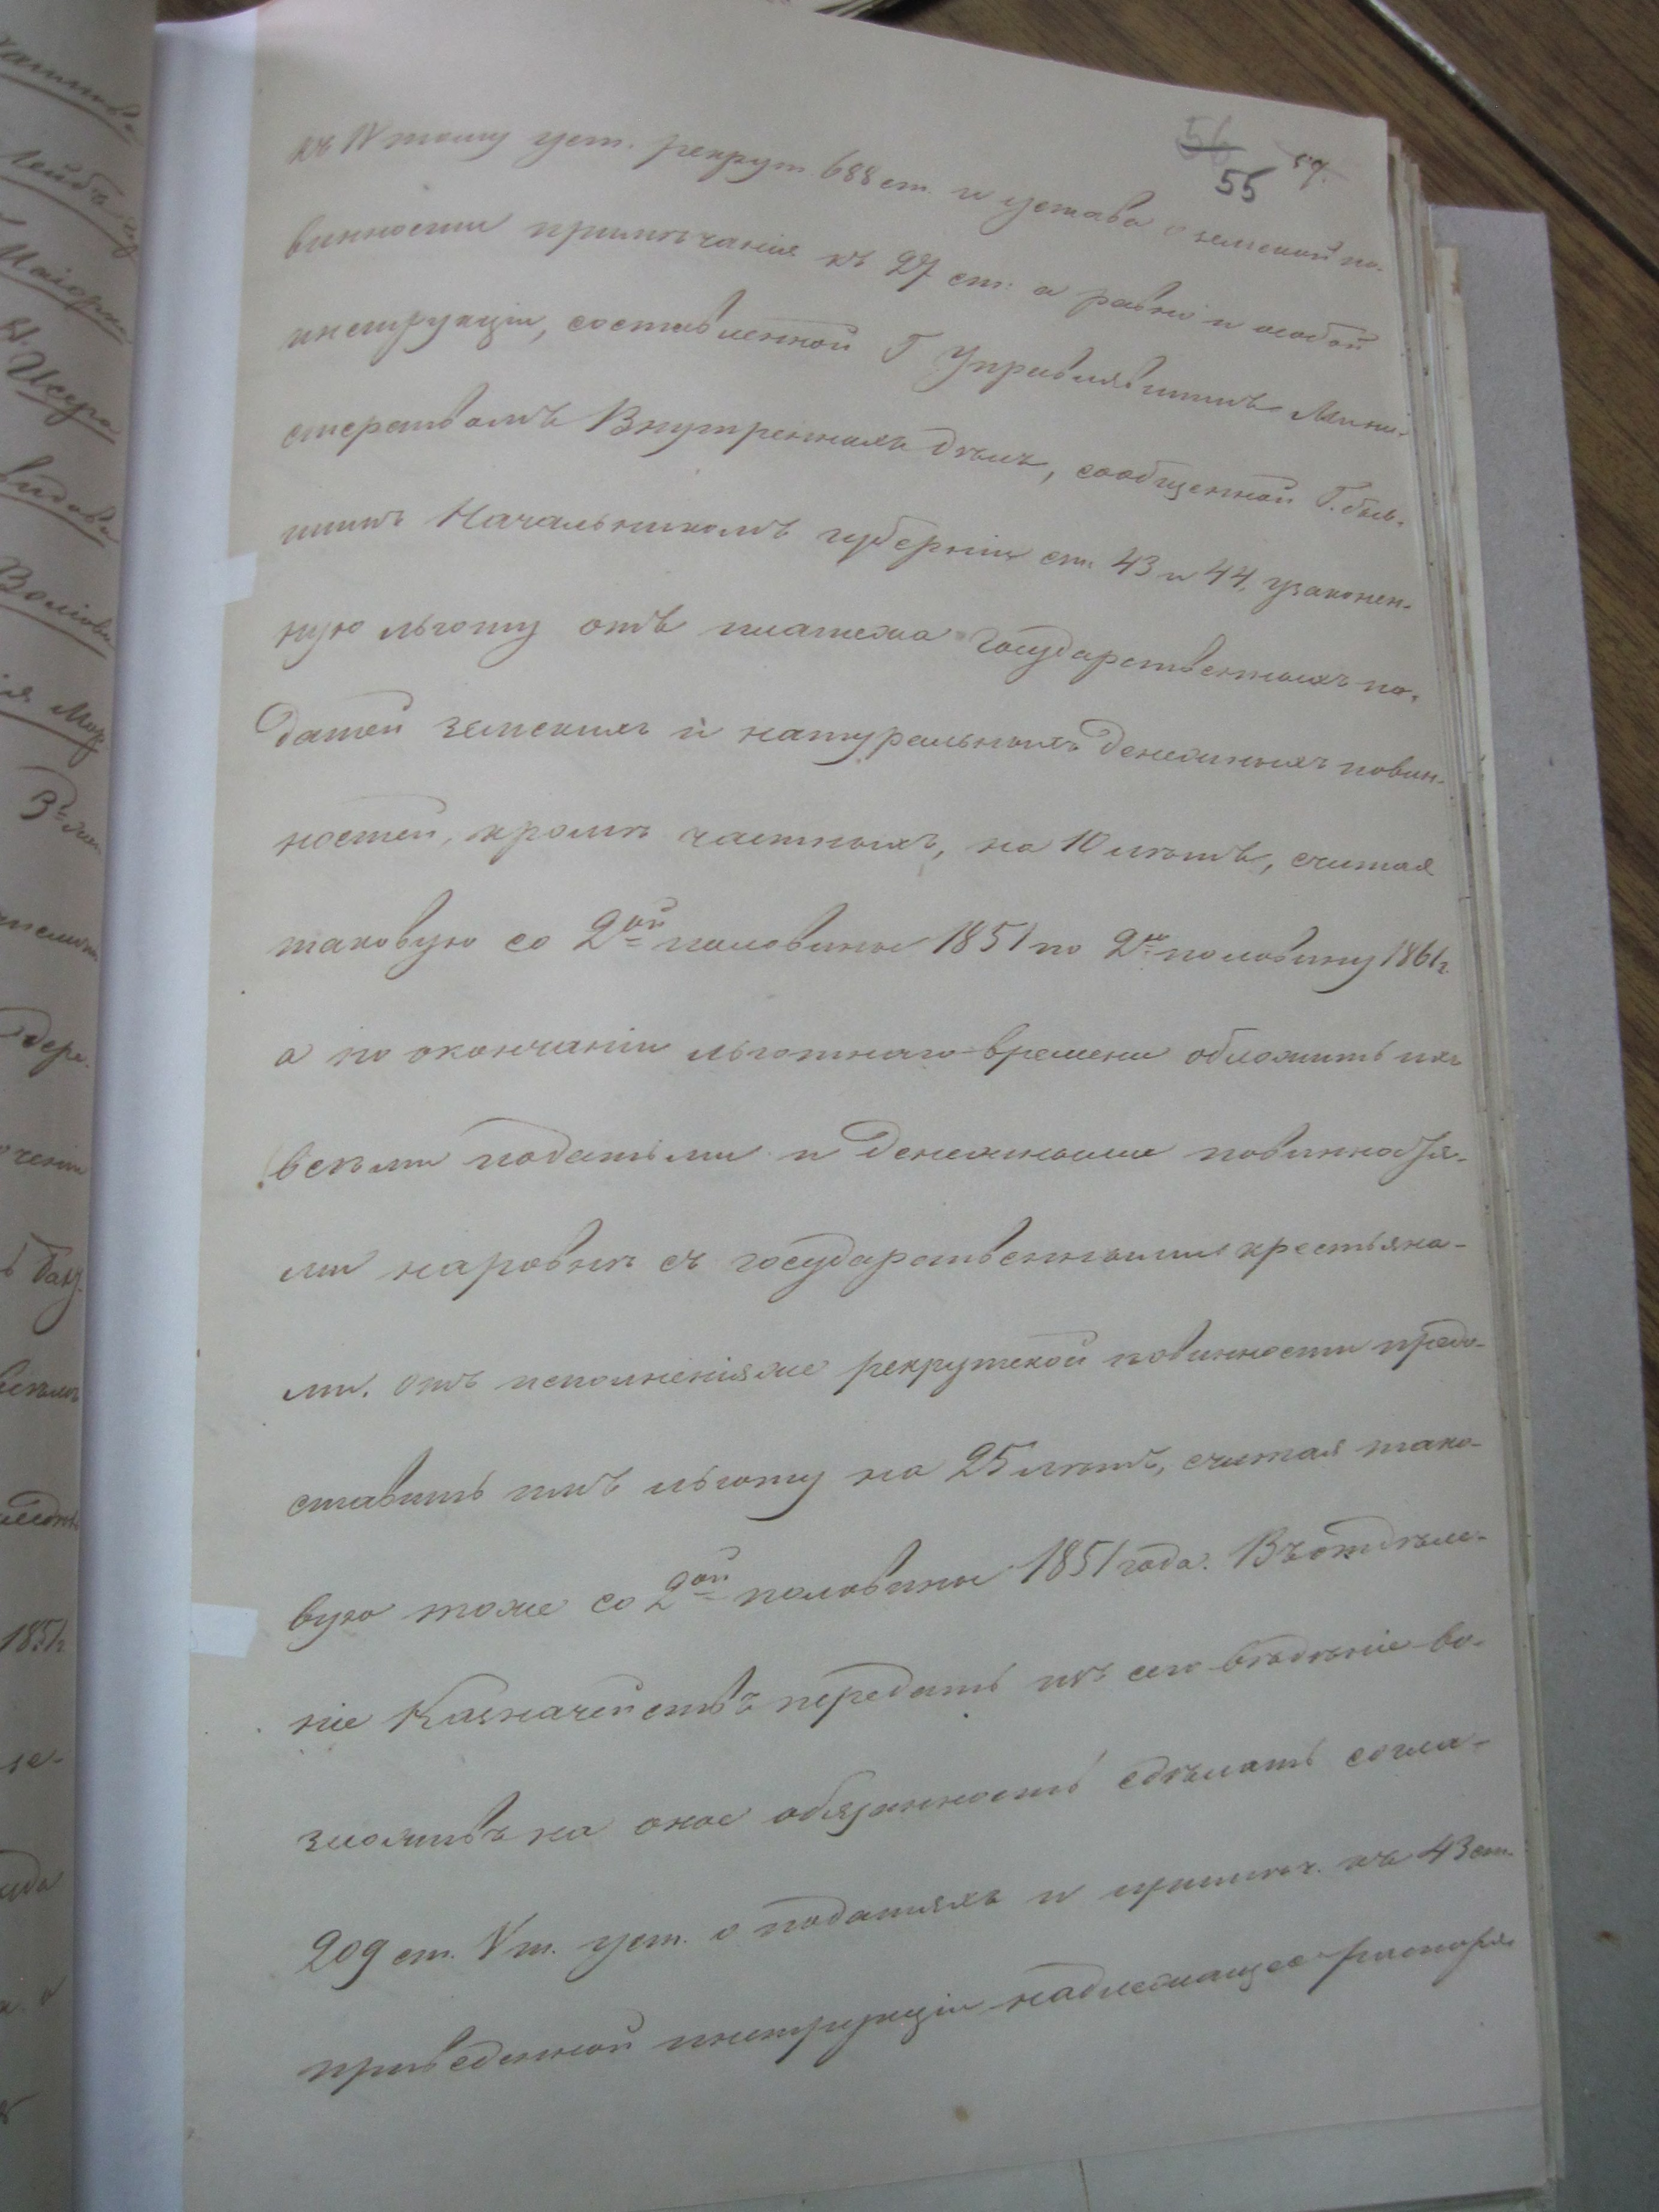 56
55
59.
къ IV тому уст. рекрут. 688 ст. и устава о земской по-
винности примѣчанія къ 27 ст. а равно и особой
инструкціи, составленной Г Управлявшимъ Мини-
стерствомъ Внутреннихъ дѣлъ, сообщенной Г. быв-
шимъ Начальникомъ губерніи ст. 43 и 44, узаконен-
ную льготу отъ платежа Государственныхъ по-
датей земскихъ и натуральныхъ денежныхъ повин-
ностей, кромѣ частныхъ, на 10 лѣтъ, считая
таковую со 2ой половины 1851 по 2ю половину 1861 г.
а по окончаніи льготнаго времени обложить ихъ
всѣми податьми и денежными повинностя-
ми наровнѣ съ государственными крестьяна-
ми. отъ исполненія же рекрутской повинности предо-
ставить имъ льготу на 25 лѣтъ, считая тако-
вую тоже со 2ой половины 1851 года. Въ отдѣле-
ніе Казначействъ передать изъ сего вѣденіе во-
зложивъ на оное обязанность сдѣлать согла-
209 ст. V т. уст. о податяхъ и примѣч. къ 43 ст.
приведенной инструкціи надлежащее распоря-